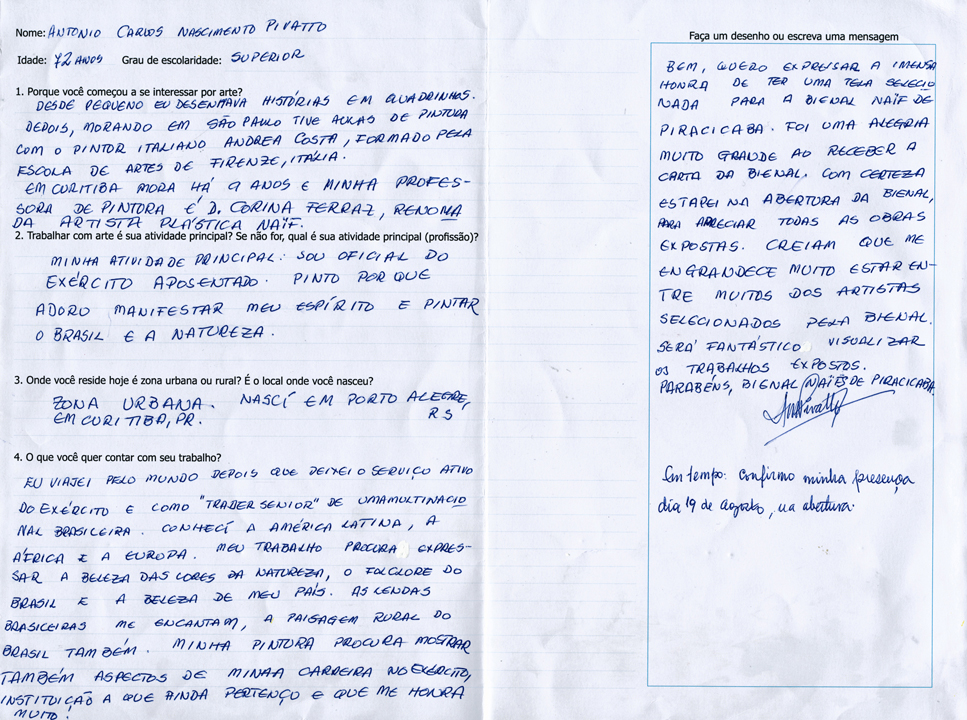 Nome: ANTONIO CARLOS NASCIMENTO PIVATTO
Idade: 72 ANOS Grau de escolaridade: SUPERIOR
1. Porque você começou a se interessar por arte?
DESDE PEQUENO EU DESENHAVA HISTÓRIAS EM QUADRINHOS.
DEPOIS, MORANDO EM SÃO PAULO TIVE AULAS DE PINTURA
COM O PINTOR ITALIANO ANDREA COSTA, FORMADO PELA
ESCOLA DE ARTES DE FIRENZE, ITÁLIA.
EM CURITIBA MORA HÁ 9 ANOS E MINHA PROFES-
SORA DE PINTORA É D. CORINA FERRAZ, RENOMA
DA ARTISTA PLÁSTICA NAÏF.
2. Trabalhar com arte é sua atividade principal? Se não for, qual é sua atividade principal (profissão)?
MINHA ATIVIDADE PRINCIPAL: SOU OFICIAL DO
EXÉRCITO APOSENTADO. PINTO POR QUE
ADORO MANIFESTAR MEU ESPÍRITO E PINTAR
O BRASIL E A NATUREZA.
3. Onde você reside hoje é zona urbana ou rural? É o local onde você nasceu?
ZONA URBANA. NASCÍ EM PORTO ALEGRE,
RS
EM CURITIBA, PR.
4. O que você quer contar com seu trabalho?
EU VIAJEI PELO MUNDO DEPOIS QUE DEIXEI O SERVIÇO ATIVO
DO EXÉRCITO E COMO "TRADER SENIOR" DE UMA MULTINACIO
NAL BRASILEIRA. CONHECÍ A AMÉRICA LATINA, A
ÁFRICA E A EUROPA. MEU TRABALHO PROCURA EXPRES-
SAR A BELEZA DAS CORES DA NATUREZA, O FOLCLORE DO
BRASIL E A BELEZA DE MEU PAÍS. AS LENDAS
BRASILEIRAS ME ENCANTAM, A PAISAGEM RURAL DO
BRASIL TAMBÉM. MINHA PINTURA PROCURA MOSTRAR
TAMBÉM ASPECTOS DE MINHA CARREIRA NO EXÉRCITO,
INSTITUIÇÃO A QUE AINDA PERTENÇO E QUE ME HONRA
MUITO!
Faça um desenho ou escreva uma mensagem
BEM, QUERO EXPRESSAR A IMENSA
HONRA DE TER UMA TELA SELECIO
NADA PARA A BIENAL NAÏF DE
PIRACICABA. FOI UMA ALEGRIA
MUITO GRANDE AO RECEBER A
CARTA DA BIENAL. COM CERTEZA
ESTAREI NA ABERTURA DA BIENAL,
PARA APRECIAR TODAS AS OBRAS
EXPOSTAS. CREIAM QUE ME
ENGRANDECE MUITO ESTAR EN-
TRE MUITOS DOS ARTISTAS
SELECIONADOS PELA BIENAL.
SERÁ FANTÁSTICO VISUALIZAR
OS TRABALHOS EXPOSTOS.
PARABENS, BIENAL NAÏFS DE PIRACICABA.
Em tempo: confirmo minha presença
dia 19 de agosto, na abertura.